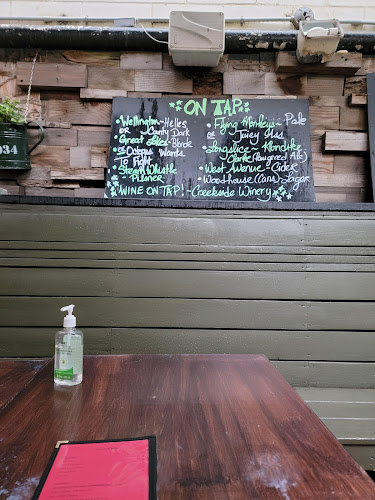 ON TAP
• Wellington - Helles
or County Dark
• Great Lakes - Blonde
or Octopus Wants
To Fight
• Steam Whistle
- Pilsner
• Flying Monkeys - Pale
or Juicy Ass
• West Avenue - Cider
• Woodhouse (Cans) Lager
WINE ON TAP! - Creekside Winery
034